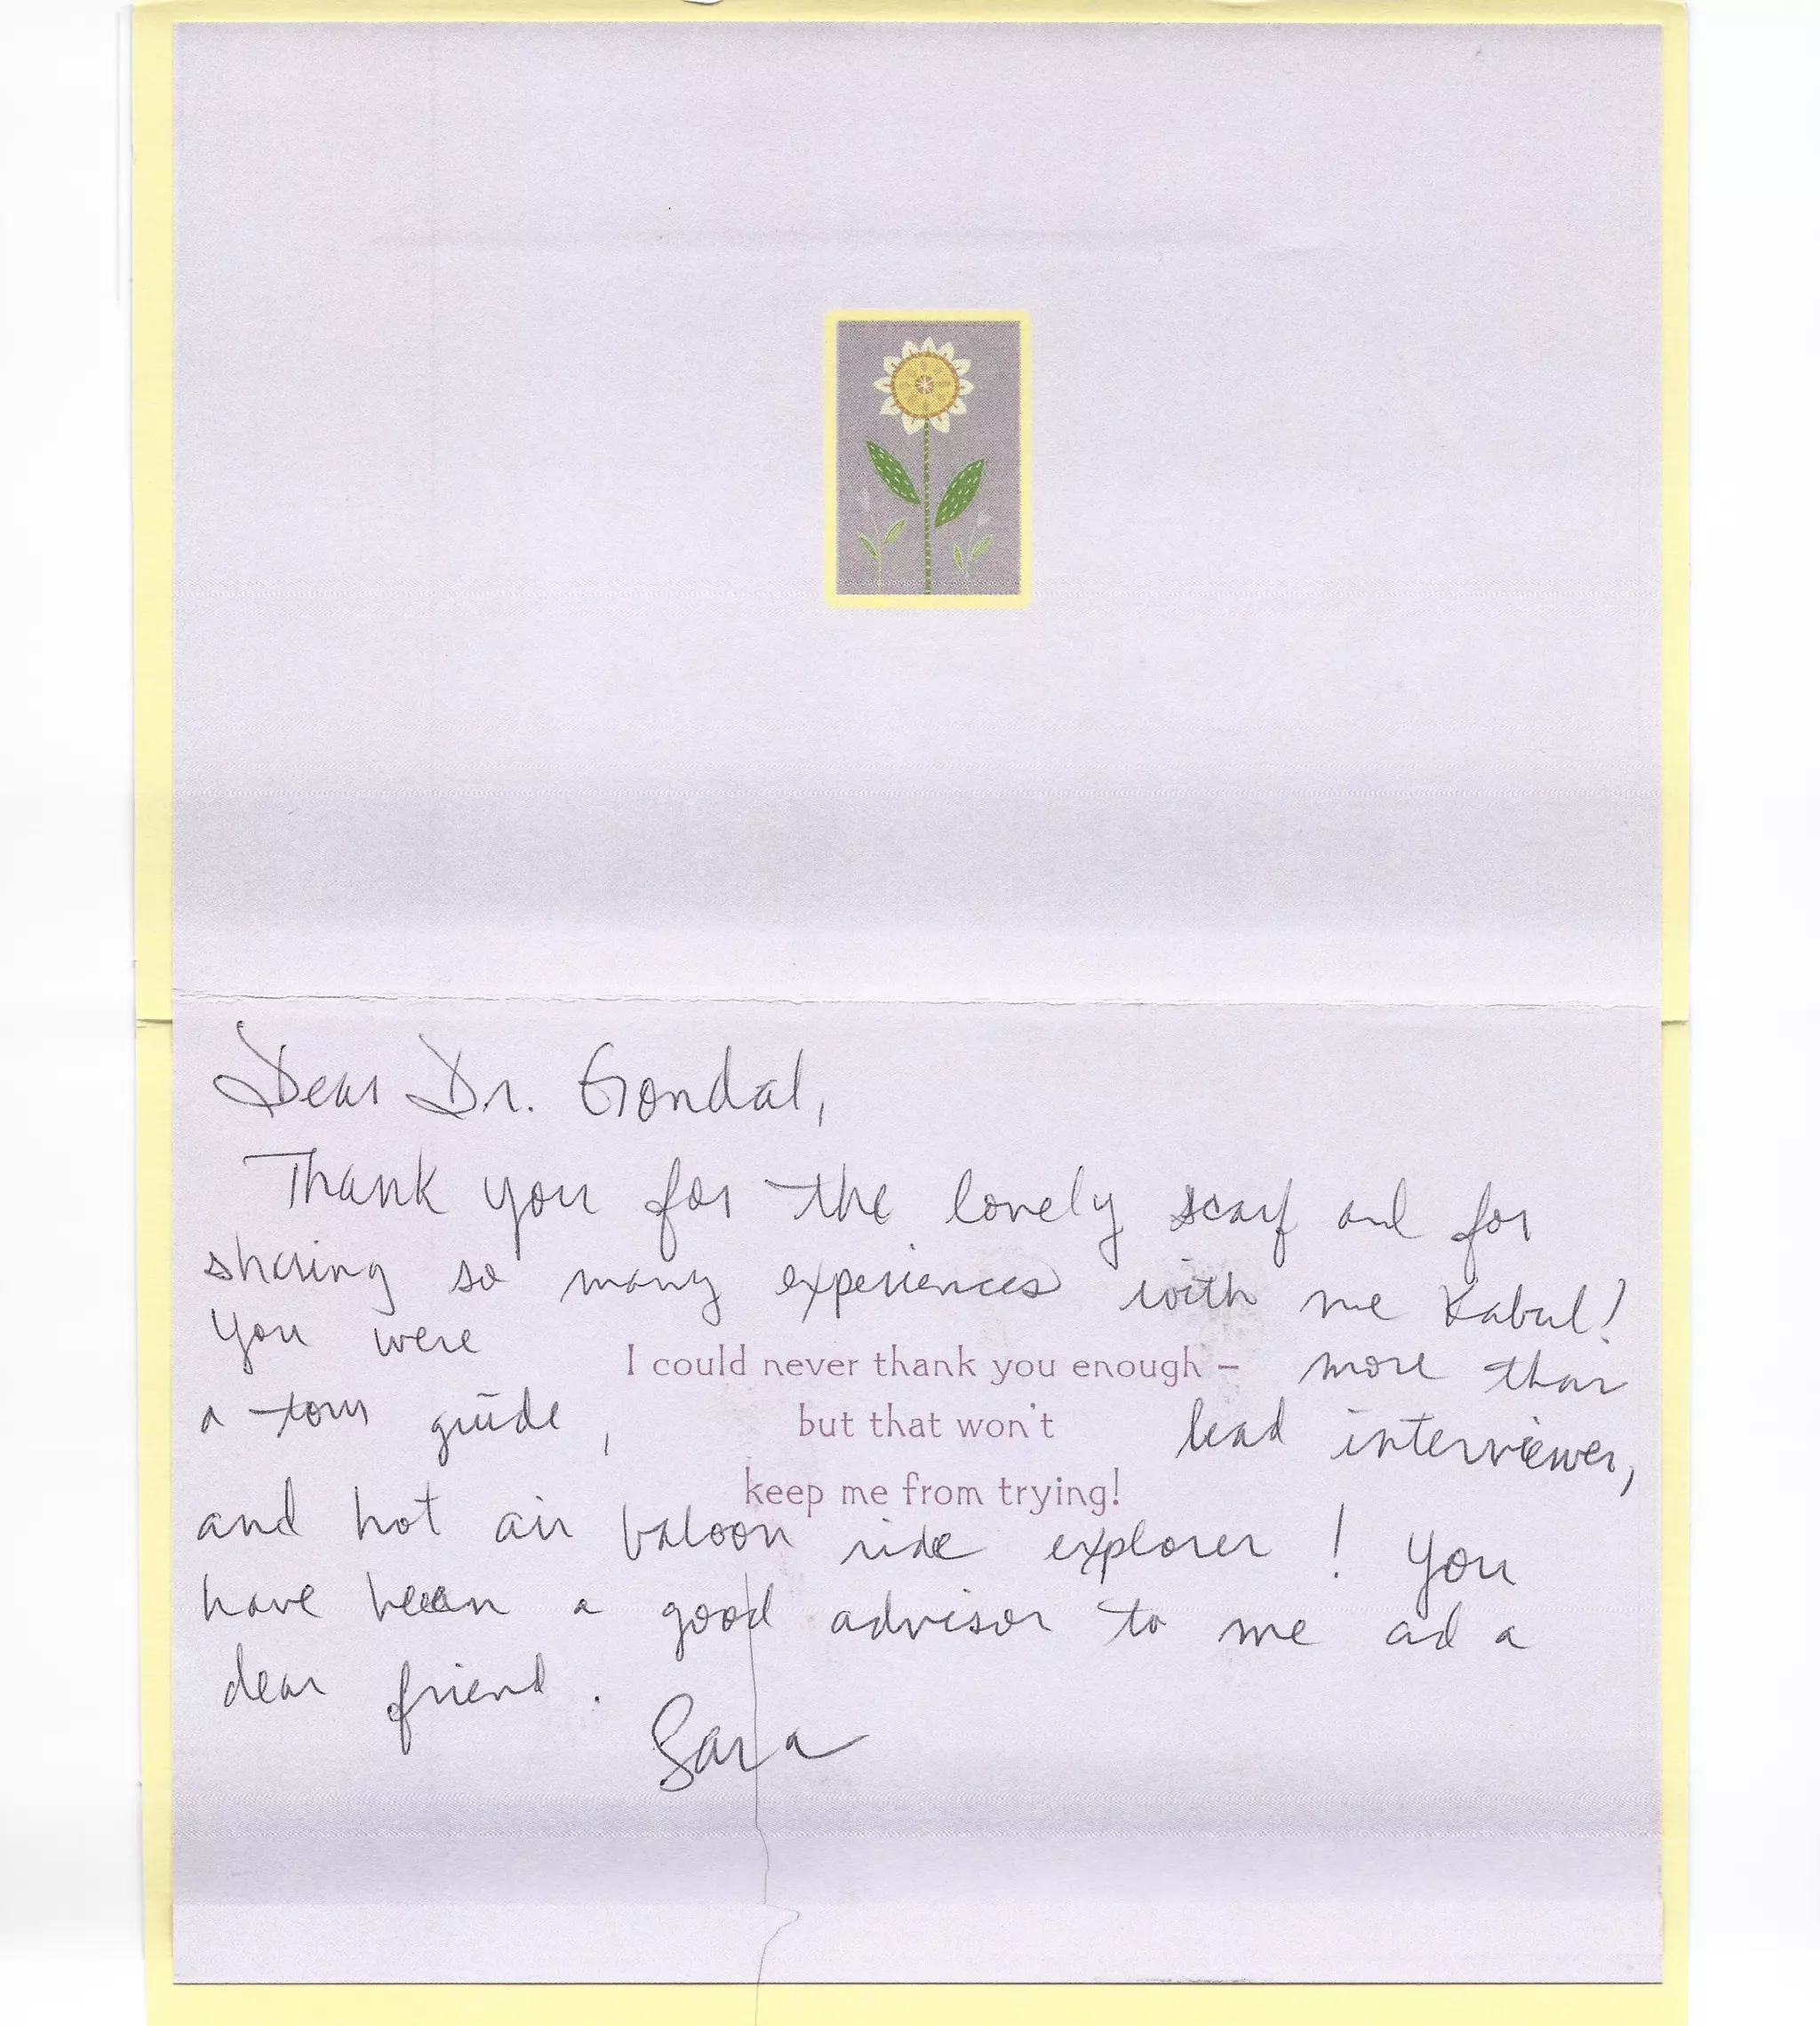 Dear Dr. Gondal,
Thank you for the lovely scarf and for
sharing so many experiences with me Kabul!
You were more than
I could never thank you enough –
a tour guide, lead interviewer,
but that won't
keep me from trying!
and hot air baloon ride explorer! You
have been a good advisor to me ad a
dear friend.
Sara